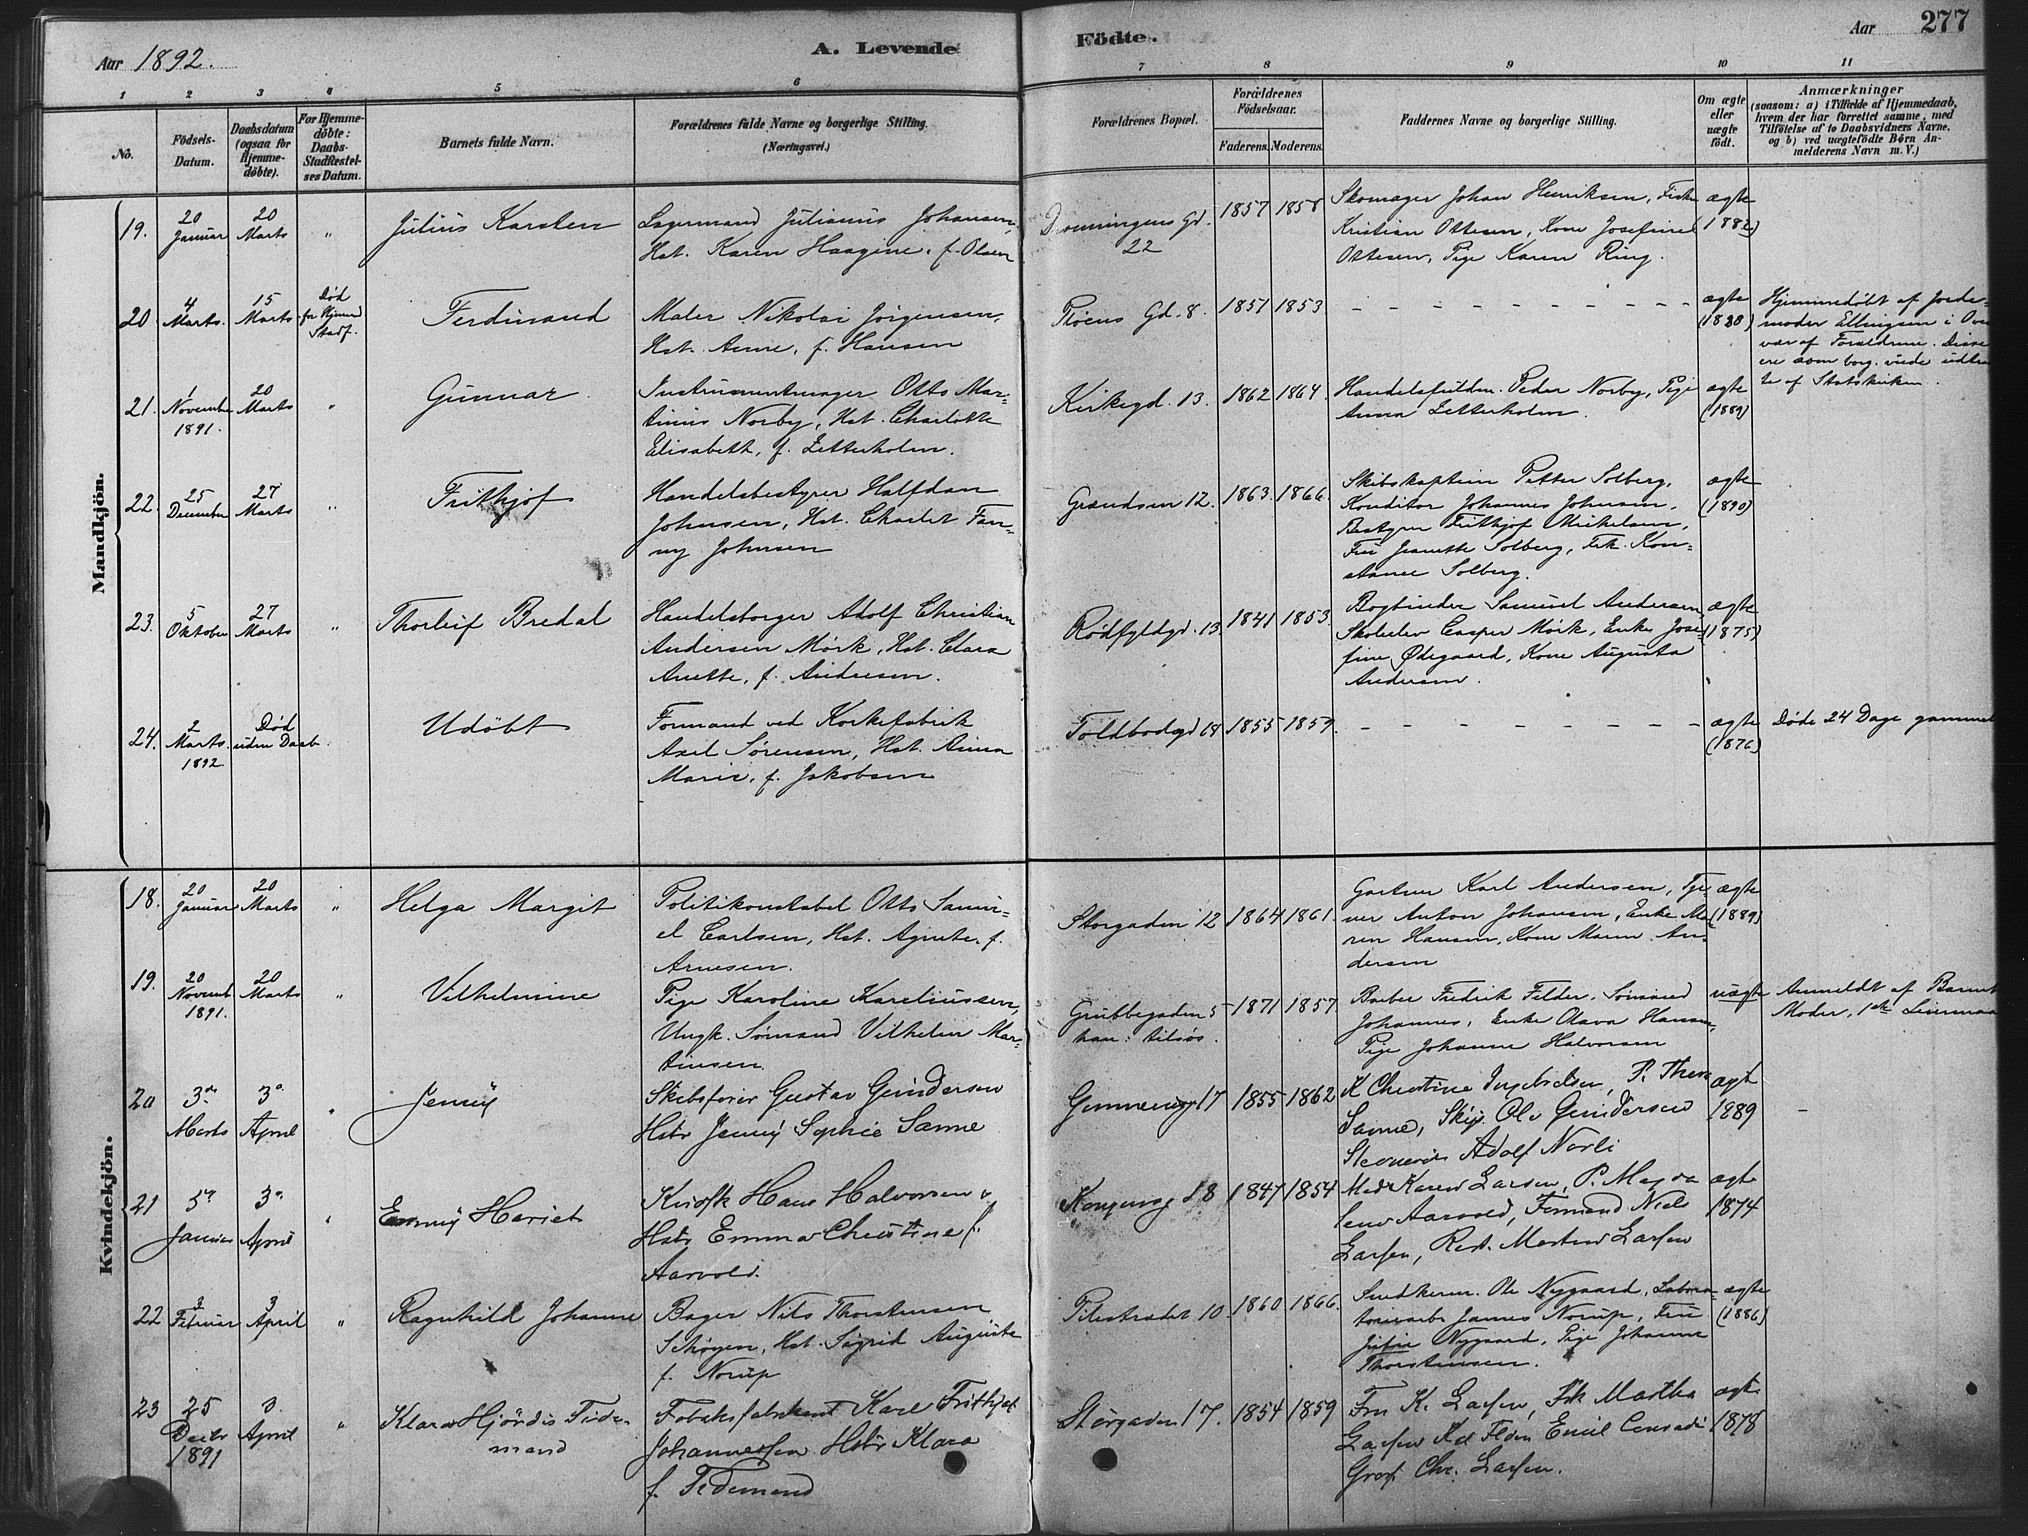 Aar 1892.
A. Levende
Födte.
Aar
277
1 2 3 4 5 6 7 8 9 10 11
No.
Födsels-
Datum.
Daabsdatum
(ogsaa for
Hjemme-
döbte).
For Hjemme-
döbte:
Daabs-
Stadfæstel-
ses Datum.
Barnets fulde Navn.
Forældrenes fulde Navne og borgerlige Stilling.
(Næringsvei.)
Forældrenes Bopæl.
Forældrenes
Födselsaar.
Faderens. Moderens.
Faddernes Navne og borgerlige Stilling.
Om ægte
eller
uægte
födt.
Anmærkninger
(saasom: a) i Tilfælde af Hjemmedaab,
hvem der har forrettet samme, med
Tilföielse af to Daabsvidners Navne,
og b) ved uægtefödte Börn An-
melderens Navn m. V.)
Mandkjön.
19.
20
Januar
20
Marts
"
Julius Karsten
Lagermand Julianus Johansen,
Hst. Karen Haagine, f. Olsen
Dronningens Gd.
22
1857
1858
Skomager Johan Henriksen,
Kristian Ottesen, Kone Josefine
Ottesen, Pige Karen Ring.
ægte
(1882)
20
4
Marts
15
Marts
Død
for Hjemed
Stadf.
Ferdinand
Maler Nikolai Jørgensen,
Hst. Anne, f. Hansen
Gd. 8.
1851
1853
ægte
Hjemmedøbt af Jorde-
moder Ellingsen i Over
vær af Forældrene. Disse
ere som borg. viede udtraa
te af Statskirken.
21.
1
November
1891.
20
Marts
"
Gunnar
Instrumentmager Otto Mar-
tinius Norby, Hst. Charlotte
Elisabeth, f. Zetterholm.
Kirkegd. 13.
1862
1864
Handelsfuldm. Peder Norby, Pige
Anna Zetterholm.
ægte
(1889)
22.
25
December
27
Marts
"
Frithjof
Handelsbestyrer Halfdan
Johnsen, Hst. Charlot Fan-
ny Johnsen
Grændsen 12.
1863.
1866.
Skibskaptein Petter Solberg,
Konditor Johannes Johnsen,
Bestyrer Frithjof Mikkelsen,
Fru Jeanette Solberg, Frk. Kon-
stance Solberg.
ægte
(1890)
23.
5
Oktober
27
Marts
"
Thorleif Bredal
Handelsborger Adolf Christian
Andersen Mørk, Hst. Clara
Anette, f. Andresen.
Rödfyldgd. 13.
1841
1853.
Bogbinder Samuel Andersen,
Skoleelev Casper Mørk, Enke Jose-
fine Ødegaard, Kone Augusta
Andersen.
ægte
(1875)
24.
2
Marts
1892
Død
uden Daab
Udöbt
Formand ved Korkefabrik
Axel Sørensen, Hst. Anna
Marie, f. Jakobsen
Toldbodgd
1855
1859.
ægte
(1876)
Døde 24 Dage gammel
Kvindekjön.
18.
20
Januar
20
Marts
"
Helga Margit
Politikonstabel Otto Samu-
el Carlsen, Hst. Agnete, f.
Arnesen.
Storgaden 12
1864
1861.
Gartner Karl Andersen,
Anton Johansen, Enke Ma-
ren Hansen, Kone Maren An-
dersen
ægte
(1889)
19.
20
Novemb
1891.
20
Marts
"
Vilhelmine
Pige Karoline Kareliussen,
Ungk. Sømand Vilhelm Mar-
tinsen.
Grubbegaden 5
han: tilsøs.
1871
1857
Barber Fredrik Felder, Sømand
Johannes, Enke Olava Hansen,
Pige Johanne Halvorsen
uægte
Anmeldt af Barnets
Moder, 1ste Leiermaal
20
3die
Marts
3die
April
"
Jenny
Skibsfører Gustav Gundersen
Hstr Jenny Sophie Sanne
17
1855
1862
K Christine Ingebretsen, P. Thea
Sanne, Skip. Ole Gundersen
Adolf Norli
ægt
1889
21
5te
Januar
3die
April
"
Emmy Hariet
Hans Halvorsen
Hstr Emma Christine f.
Aarvold.
18
1847
1854
Mad. Karen Larsen, P. Magda
Aarvold, Formand Niels
Larsen, Rest. Larsen
ægt
1874
22
3
Februar
3
April
"
Ragnhild Johanne
Bager Nils Thorstensen
Schøyen, Hst. Sigrid Augusta
f. Norup
Pilestrædet 10.
1860
1866.
Snedkerm. Ole Nygaard, Labora-
James Norup, Fru
Nygaard, Pige Johanne
Thorstensen.
ægte
(1886)
23
25
Decbr
1891
3.
April
"
Klara Hjördis Tide-
mand
Tobaksfabrikant Karl Frithjof
Johannessen Hstr Klara
f. Tidemand
Storgaden 17.
1854
1859
Fru K. Larsen, Frk Martha
Larsen Emil Conradi
Gross. Chr. Larsen.
ægt
1878